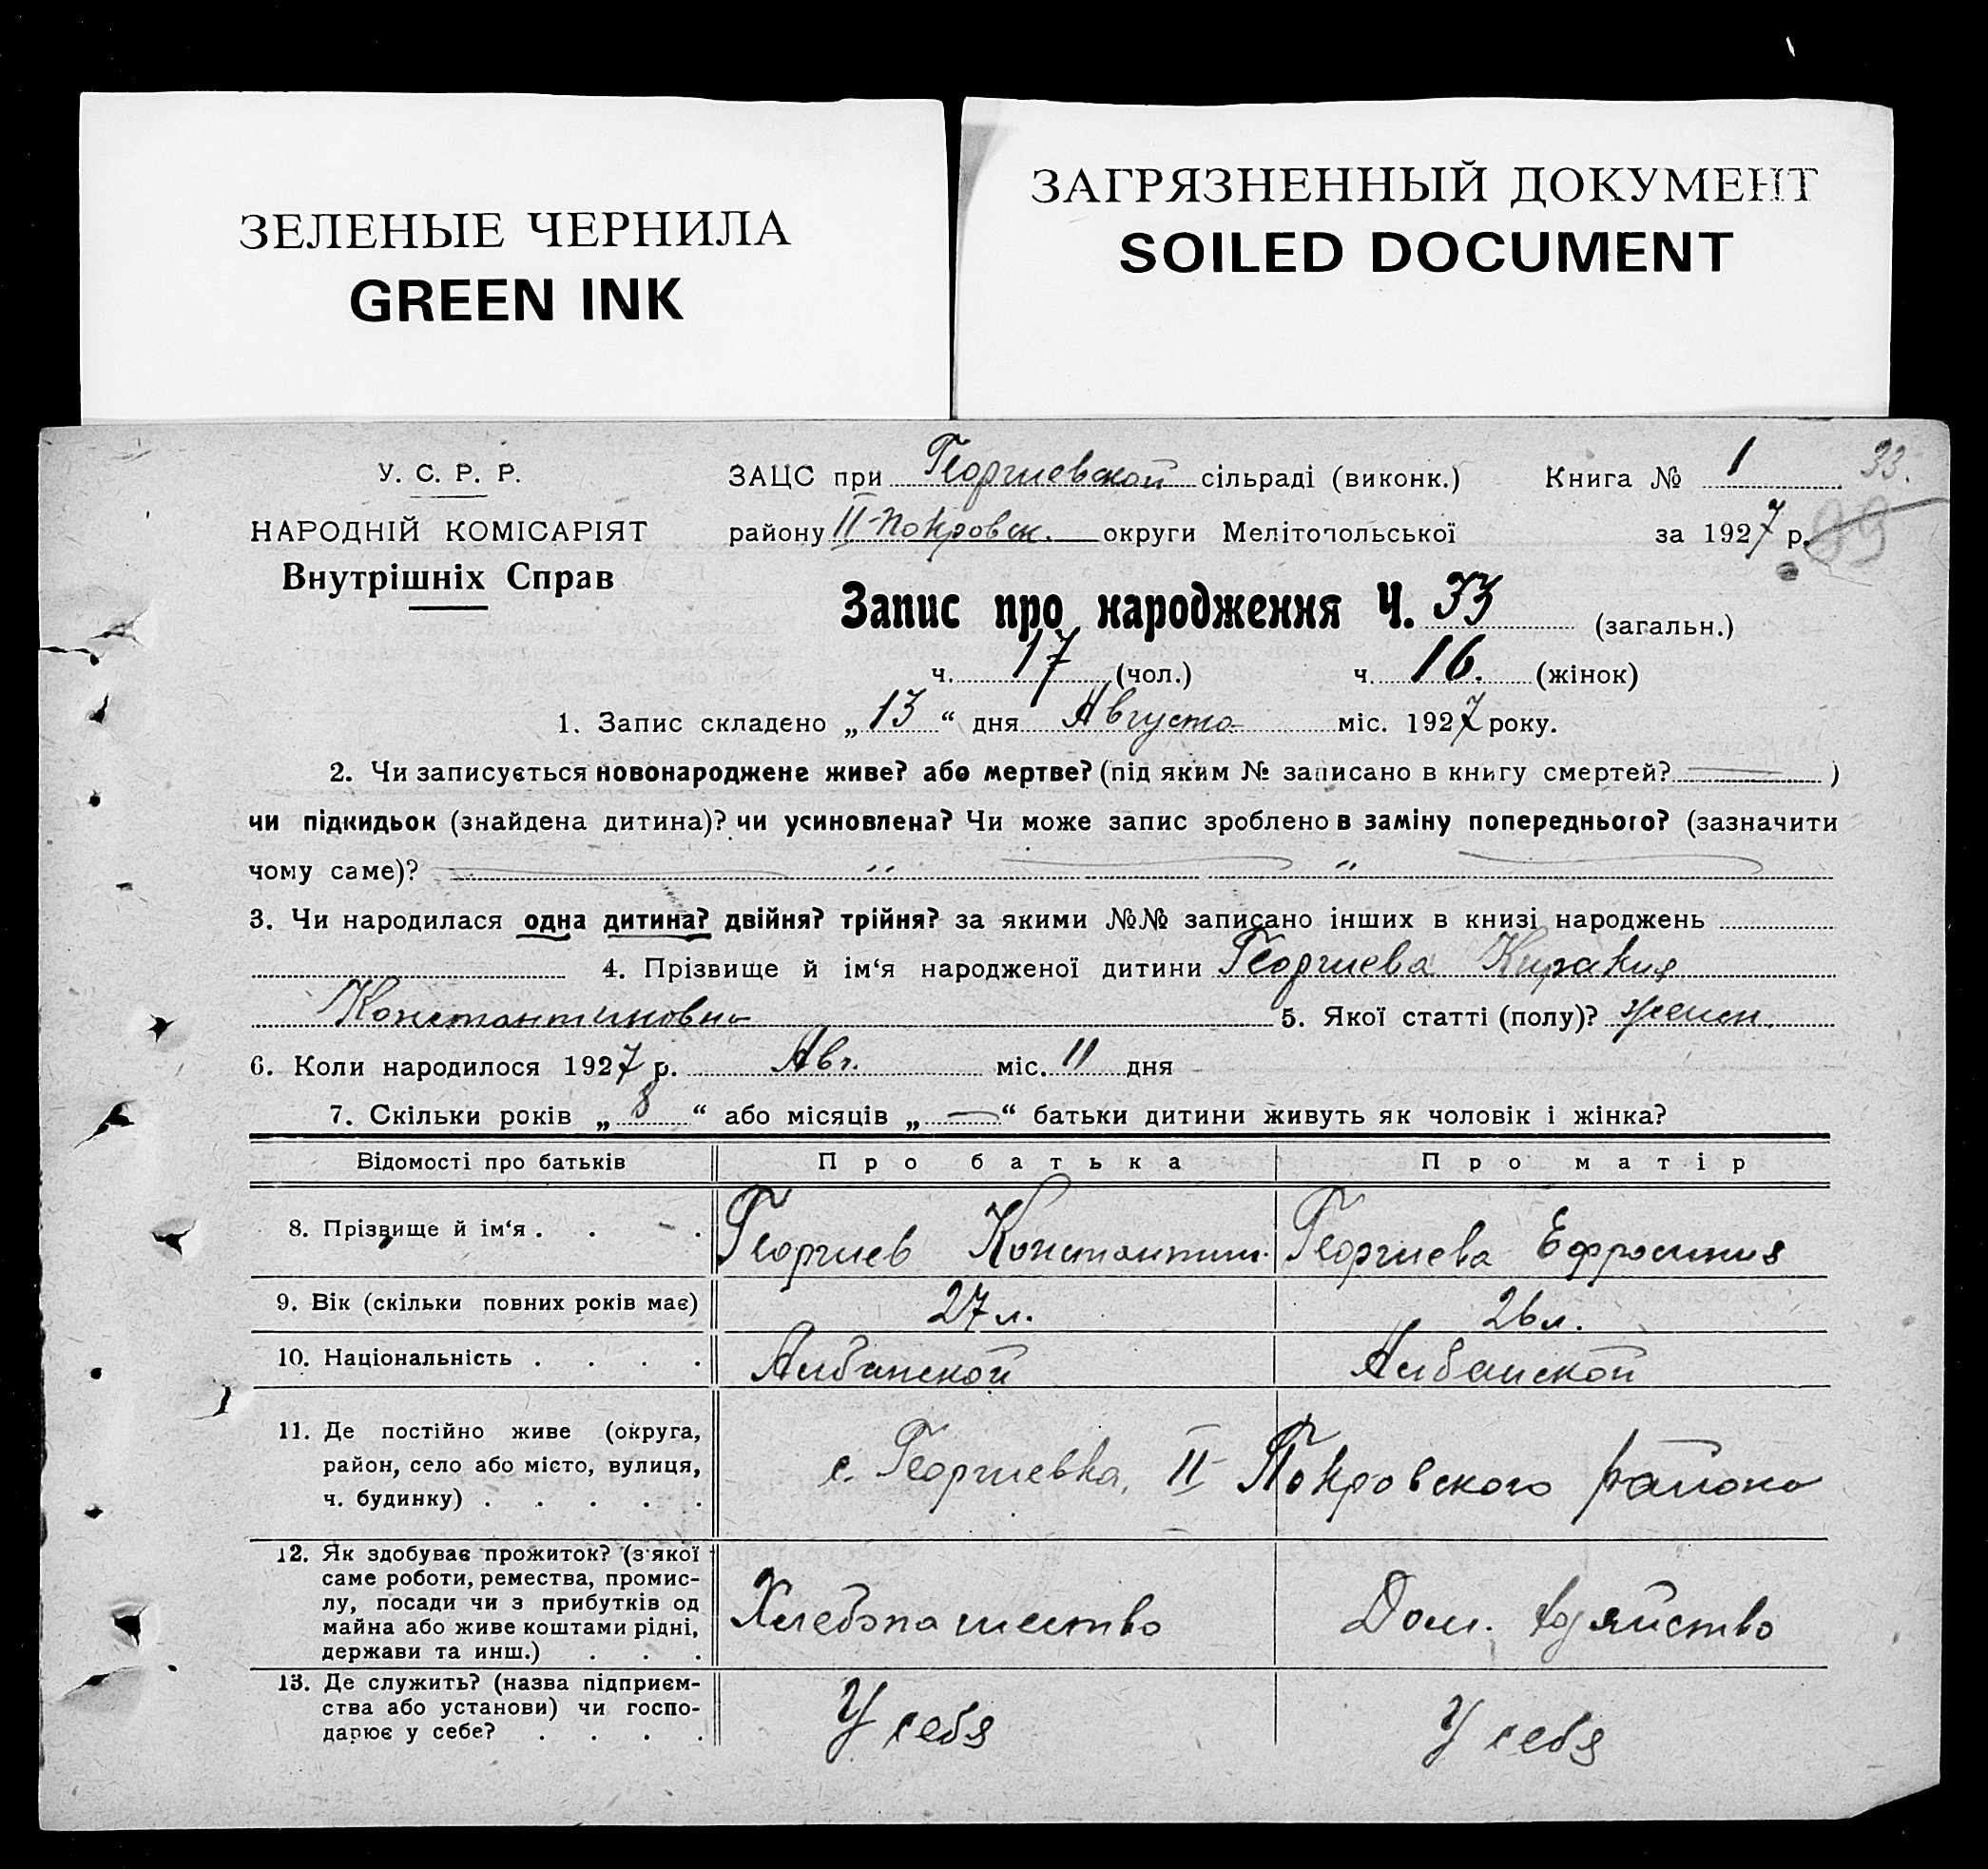 ЗЕЛЕНЫЕ ЧЕРНИЛА
GREEN INK
ЗАГРЯЗНЕННЫЙ ДОКУМЕНТ
SOILED DOCUMENT
У. С. Р. Р.
НАРОДНІЙ КОМІСАРІЯТ
Внутрішніх Справ
ЗАЦС при Георгиевской сільраді (виконк.) Книга № 1 33.
району II-Покровск. округи Мелітопольської за 1927 р. 99
Запис про народження Ч. 33 (загальн.)
ч. 17 (чол.) ч. 16. (жінок)
1. Запис складено „ 13 “ дня Августа міс. 1927 року.
2. Чи записується новонароджене живе? або мертве? (під яким № записано в книгу смертей? — )
чи підкидьок (знайдена дитина)? чи усиновлена? Чи може запис зроблено в заміну попереднього? (зазначити
чому саме)? — „ — „ —
3. Чи народилася одна дитина? двійня? трійня? за якими №№ записано інших в книзі народжень
4. Прізвище й ім‘я народженої дитини Георгиева Киракия
Константиновна 5. Якої статті (полу)? женск.
6. Коли народилося 1927 р. Авг. міс. 11 дня
7. Скільки років „ 8 “ або місяців „ — “ батьки дитини живуть як чоловік і жінка?
Відомості про батьків Про батька Про матір
8. Прізвище й ім‘я . . . Георгиев Константин. Георгиева Ефросиния
9. Вік (скільки повних років має) 27 л. 26 л.
10. Національність . . . . Албанской Албанской
11. Де постійно живе (округа,
район, село або місто, вулиця,
ч. будинку) . . . . . с. Георгиевка, II-Покровского района
12. Як здобуває прожиток? (з якої
саме роботи, ремества, промис-
лу, посади чи з прибутків од
майна або живе коштами рідні,
держави та инш.) . . . Хлебопашество Дом. хозяйство
13. Де служить? (назва підприєм-
ства або установи) чи госпо-
дарює у себе? . . . . У себя У себя